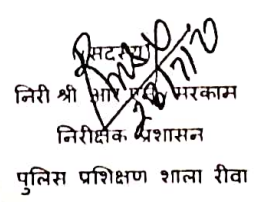 सदस्य
निरी श्री आर एस मरकाम
निरीक्षक प्रशासन
पुलिस प्रशिक्षण शाला रीवा